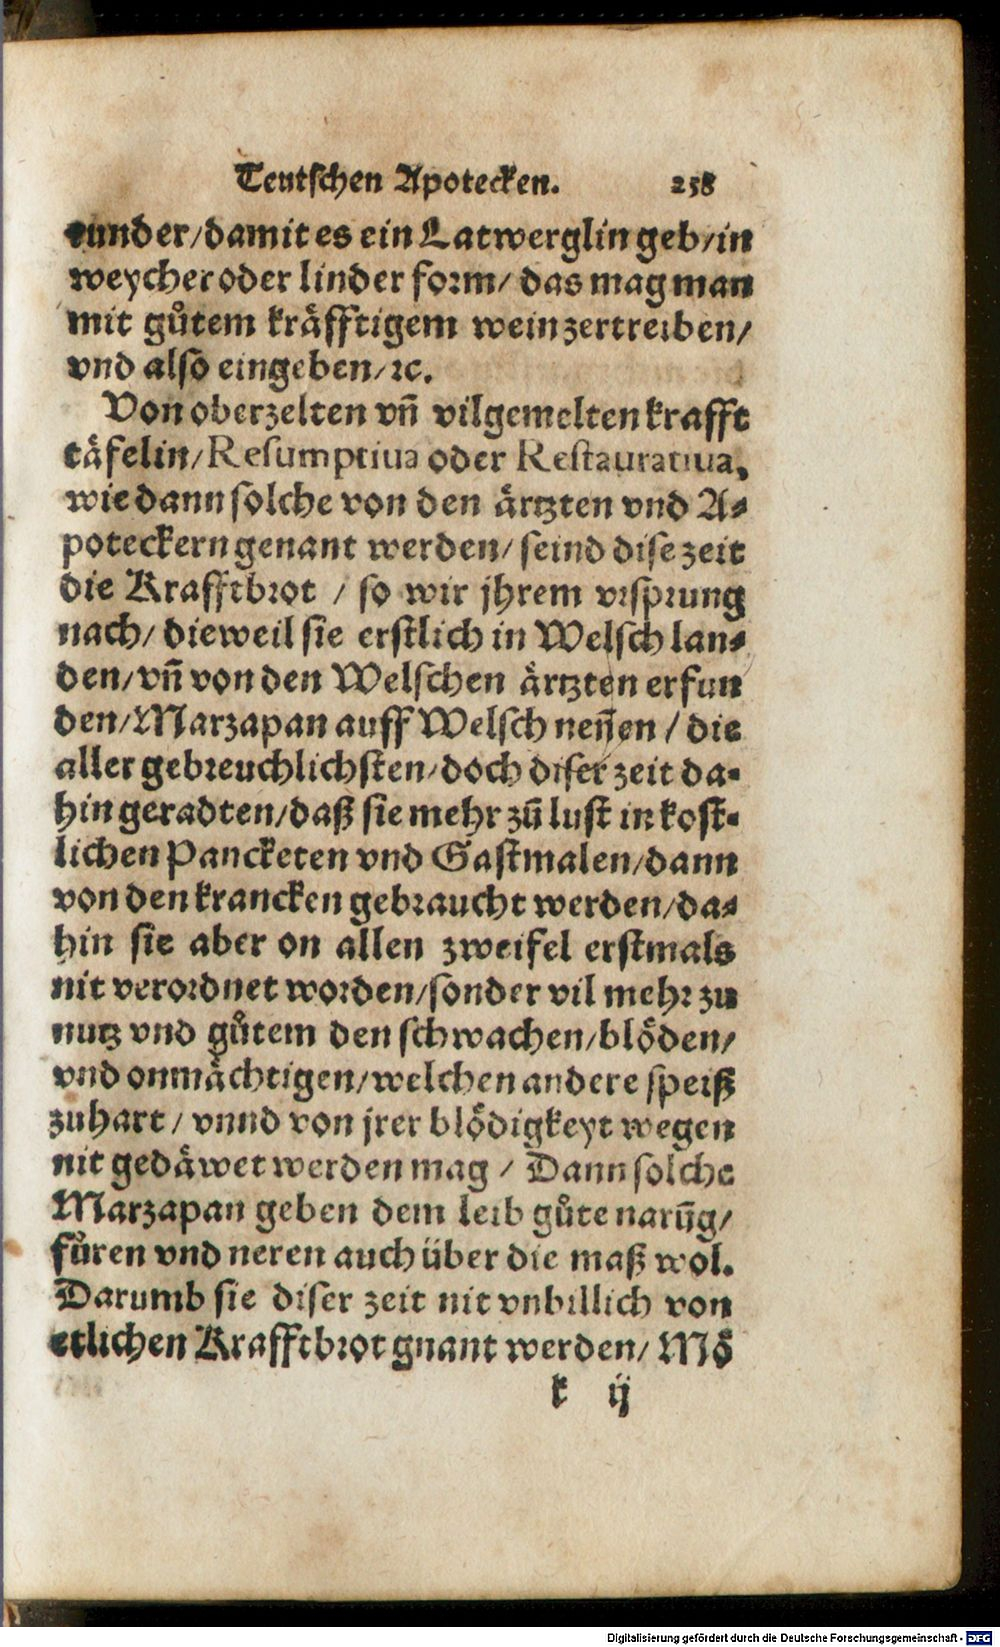 Teutschen Apotecken. 258
runder/damit es ein Latwerglin geb/in
weycher oder linder form/ das mag man
mit gůtem kräfftigem wein zertreiben/
vnd also eingeben/ꝛc.
Von oberzelten vn̄ vilgemelten krafft
täfelin/Resumptiua oder Restauratiua,
wie dann solche von den ärtzten vnd A⸗
poteckern genant werden/ seind dise zeit
die Krafftbrot / so wir jhrem vrsprung
nach/ dieweil sie erstlich in Welsch lan⸗
den/vn̄ von den Welschen ärtzten erfun
den/Marzapan auff Welsch neñen / die
aller gebreuchlichsten/doch diser zeit da⸗
hin geradten/daß sie mehr zů lust in kost⸗
lichen Pancketen vnd Gastmalen/dann
von den krancken gebraucht werden/da⸗
hin sie aber on allen zweifel erstmals
nit verordnet worden/sonder vil mehr zu
nutz vnd gůtem den schwachen/blöden/
vnd onmächtigen/welchen andere speiß
zu hart / vnnd von jrer blödigkeyt wegen
nit gedäwet werden mag / Dann solche
Marzapan geben dem leib gůte narūg/
fůren vnd neren auch über die maß wol.
Darumb sie diser zeit nit vnbillich von
etlichen Krafftbrot gnant werden/ Mö
k ij
Digitalisierung gefördert durch die Deutsche Forschungsgemeinschaft - DFG